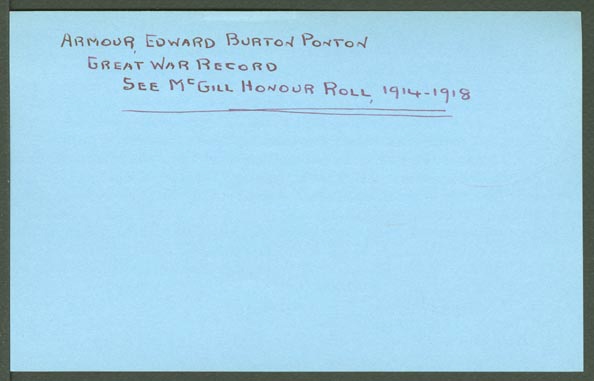 Armour, Edward Burton Ponton
Great War Record
See McGill Honour Roll, 1914-1918